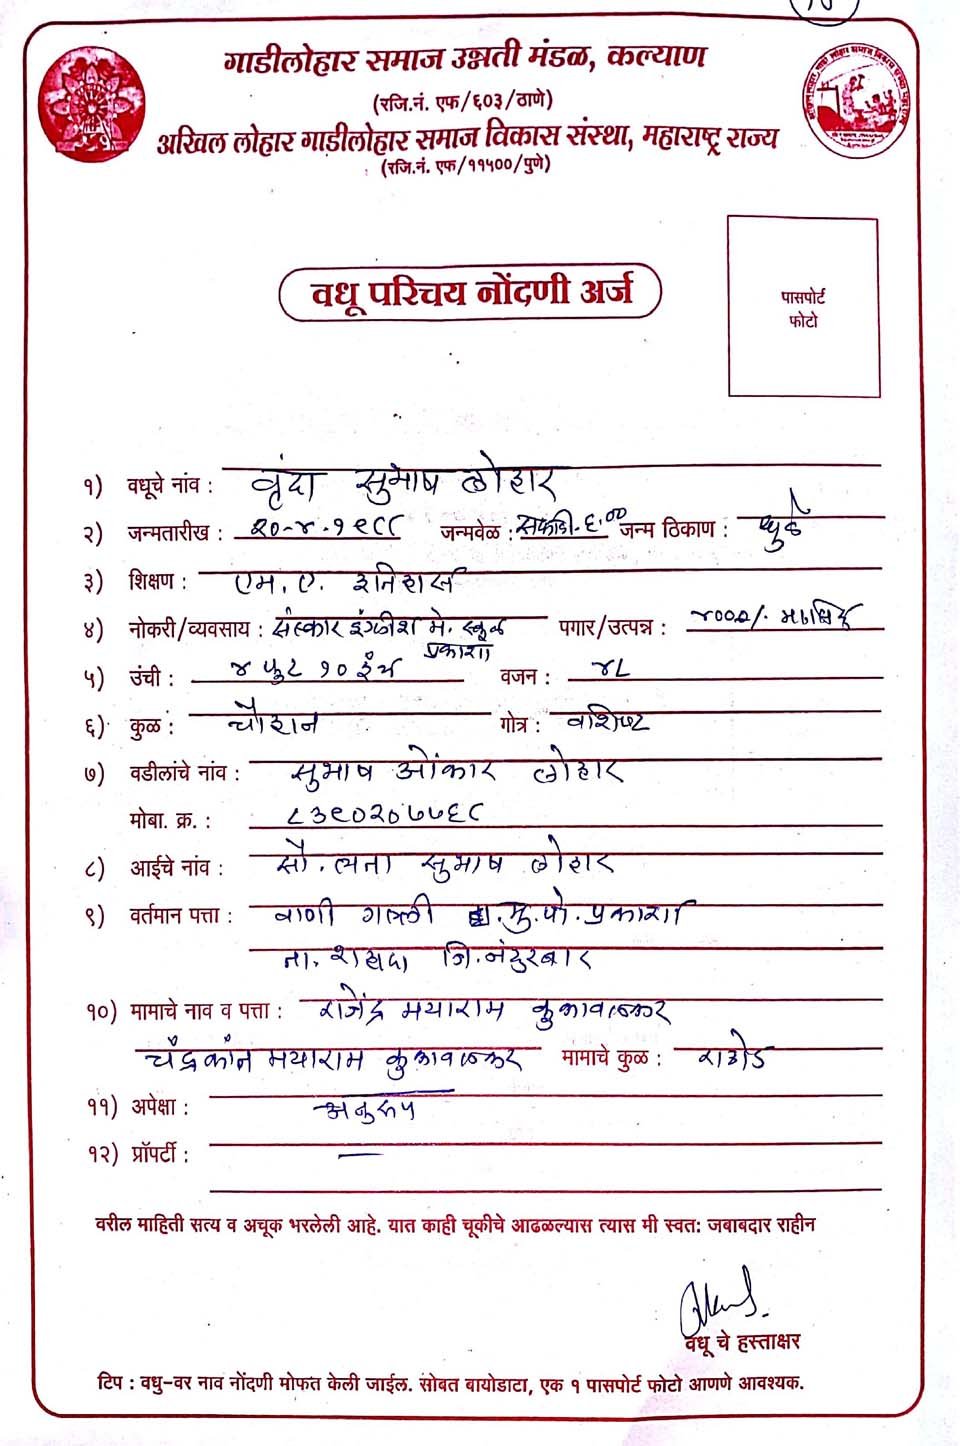 गाडीलोहार समाज उन्नती मंडळ, कल्याण
(रजि.नं. एफ/६०३/ठाणे)
अखिल लोहार गाडीलोहार समाज विकास संस्था, महाराष्ट्र राज्य
(रजि.नं. एफ/११५००/पुणे)
वधू परिचय नोंदणी अर्ज
पासपोर्ट
फोटो
१) वधूचे नांव : वृंदा सुभाष लोहार
२) जन्मतारीख : २०-४-१९८८ जन्मवेळ : सकाळी-६.०० जन्म ठिकाण : धुळे
३) शिक्षण : एम. ए. इतिहास
४) नोकरी/व्यवसाय : संस्कार इंग्लीश मे. स्कूल प्रकाशा पगार/उत्पन्न : ४०००/-
५) उंची : ४ फुट १० इंच वजन : ४८
६) कुळ : चौहान गोत्र : वशिष्ट
७) वडीलांचे नांव : सुभाष ओंकार लोहार
मोबा. क्र. : ८३९०२०७५६८
८) आईचे नांव : सौ. लता सुभाष लोहार
९) वर्तमान पत्ता : वाणी गल्ली मु.पो. प्रकाशा
ता. शहादा जि. नंदुरबार
१०) मामाचे नाव व पत्ता : राजेंद्र मयाराम कुकावळकर
चंद्रकांत मयाराम कुकावळकर मामाचे कुळ : राठोड
११) अपेक्षा : अनुरूप
१२) प्रॉपर्टी : —
वरील माहिती सत्य व अचूक भरलेली आहे. यात काही चूकीचे आढळल्यास त्यास मी स्वत: जबाबदार राहीन
वधू चे हस्ताक्षर
टिप : वधु-वर नाव नोंदणी मोफत केली जाईल. सोबत बायोडाटा, एक १ पासपोर्ट फोटो आणणे आवश्यक.